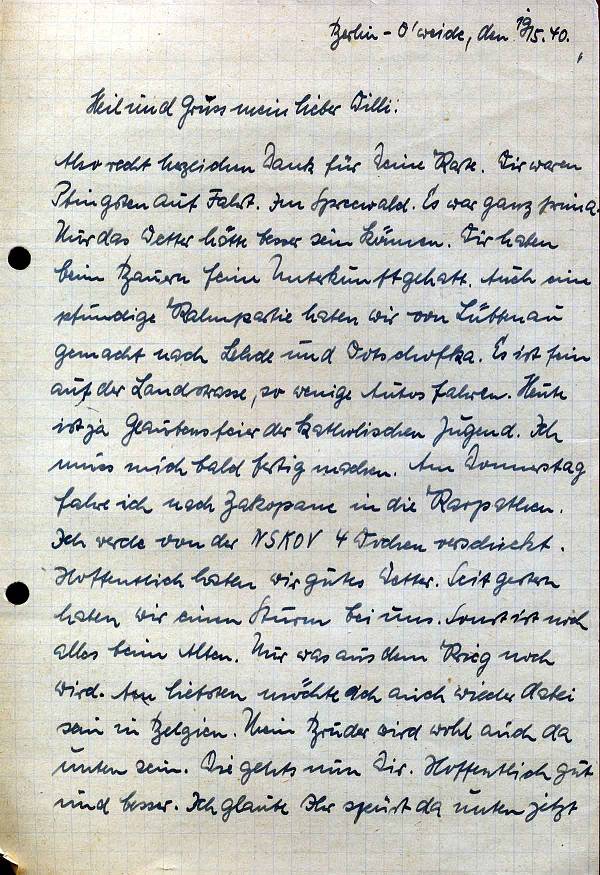 Berlin - O'weide, den 19/5.40.
Heil und Gruss mein lieber Willi:
Also recht herzlichen Dank für Deine Karte. Wir waren
Pfingsten auf Fahrt. Im Spreewald. Es war ganz prima.
Nur das Wetter hätte besser sein können. Wir haben
beim Bauern feine Unterkunft gehabt. Auch eine
pfundige Kahnpartie haben wir von Lübbenau
gemacht nach Lehde und Wotschofska. Es ist fein
auf der Landstrasse, so wenige Autos fahren. Heute
ist ja Glaubensfeier der katholischen Jugend. Ich
muss mich bald fertig machen. Am Donnerstag
fahre ich nach Zakopane in die Karpathen.
Ich werde von der NSKOV 4 Wochen verschickt.
Hoffentlich haben wir gutes Wetter. Seit gestern
haben wir einen Sturm bei uns. Sonst ist noch
alles beim Alten. Nur was aus dem Krieg noch
wird. Am liebsten möchte ich auch wieder dabei
sein in Belgien. Mein Bruder wird wohl auch da
unten sein. Wie gehts nun Dir. Hoffentlich gut
und besser. Ich glaube Ihr spürt da unten jetzt